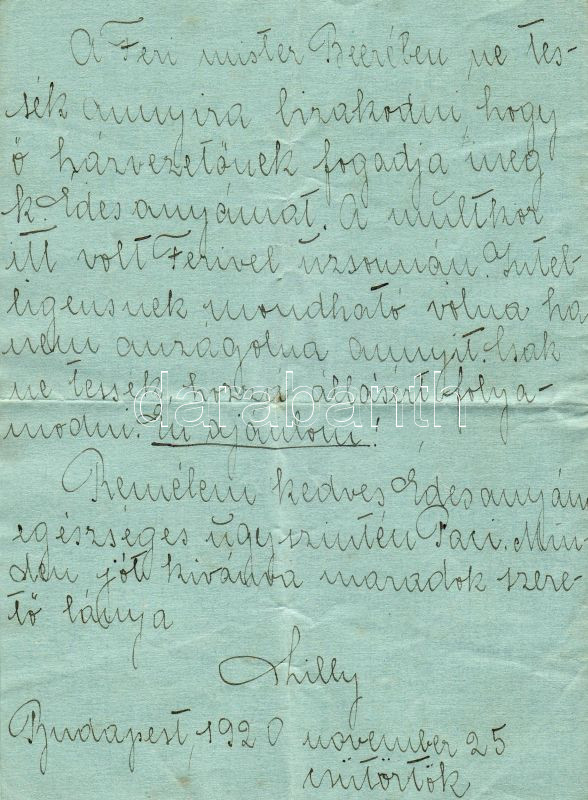 A Feri mister Beerében ne tes-
sék annyira bizakodni hogy
ő házvezetőnek fogadja meg
k. Édesanyámat. A multkor
itt volt Ferivel uzsonnán. Intel-
ligensnek mondható volna ha
nem anzágolna annyit. Csak
ne tessék hozzá állásért folya-
modni. Én ajánlom!
Remélem kedves Édesanyám
egészséges úgyszintén Paci. Min-
den jót kivánva maradok szere-
tő lánya
Lilly
Budapest, 1920 november 25
csütörtök
darabanth